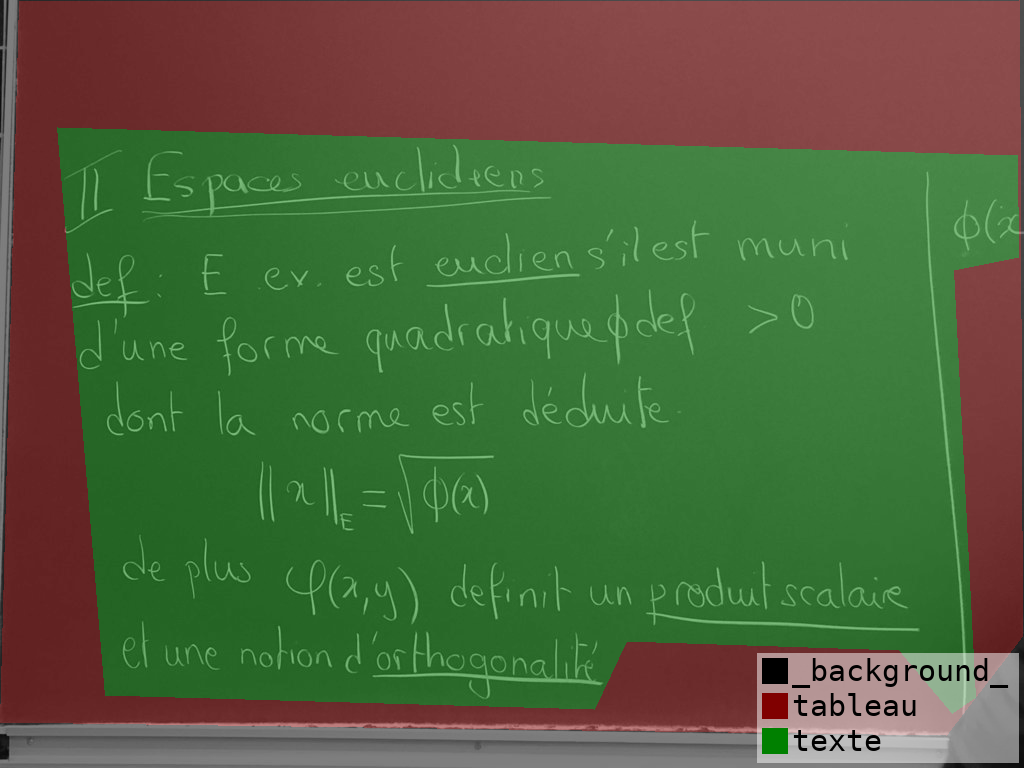 II Espaces euclidiens
def : E ev. est euclien s'il est muni
d'une forme quadratique ϕ def > 0
dont la norme est déduite.
||x||_E = √ϕ(x)
de plus φ(x,y) definit un produit scalaire
et une notion d'orthogonalité
ϕ(x
_background_
tableau
texte